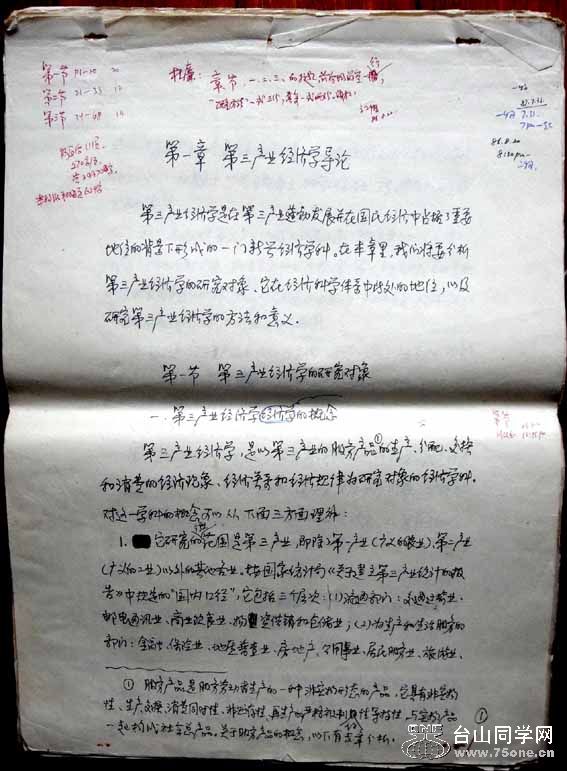 第一节
第二节
第三节
第一章 第三产业经济学导论
第三产业经济学是在第三产业蓬勃发展并在国民经济中占据了重要
地位的背景下形成的一门新兴经济学科。在本章里,我们将要分析
第三产业经济学的研究对象、它在经济科学体系中所处的地位,以及
研究第三产业经济学的方法和意义。
第一节 第三产业经济学的研究对象
一、第三产业经济学的概念
第三产业经济学,是以第三产业的服务产品①的生产、分配、交换
和消费的经济现象、经济关系和经济规律为研究对象的经济学科。
对这一学科的概念可以从下面三方面理解:
1. 它研究的范围是第三产业,即除了第一产业(广义的农业)、第二产业
(广义的工业)以外的其他各业。按国家统计局《关于建立第三产业统计的报
告》中规定的“国内口径”,它包括三个层次:(1)流通部门:交通运输业、
邮电通讯业、商业饮食业、物资供销和仓储业;(2)为生产和生活服务的
部门:金融、保险业、地质普查业、房地产、公用事业、居民服务业、旅游业、
① 服务产品是服务劳动者生产的一种非实物形态的产品,它具有非实物
性、生产交换消费同时性、非贮存性、再生产的严格被制约性等特性,与实物产品
一起构成社会总产品。关于服务产品的概念,以下有专章分析。
①
台山同学网
www.75one.cn